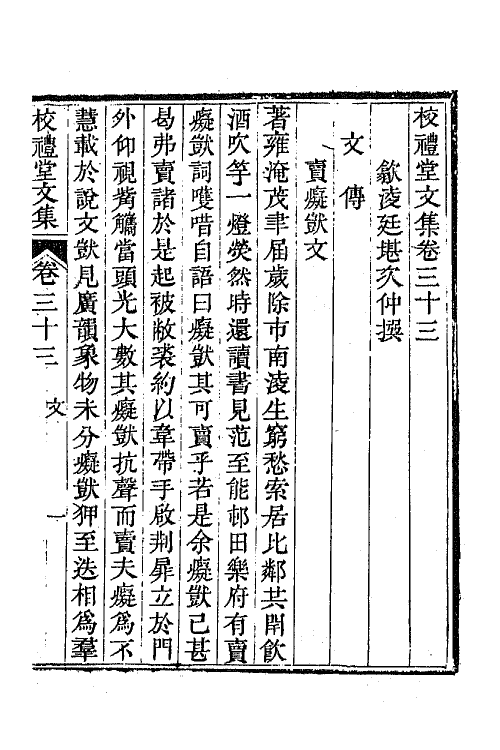 校禮堂文集卷三十三
歙淩廷堪次仲撰
文傳
賣癡獃文
著雍淹茂聿届歲除市南淩生窮愁索居比鄰共閙飲
酒吹竽一燈熒然時還讀書見范至能邨田樂府有賣
癡獃詞嘆唶自語曰癡獃其可賣乎若是余癡獃已甚
曷弗賣諸於是起被敝裘約以韋帶手啟荆扉立於門
外仰視觜觿當頭光大數其癡獃抗聲而賣夫癡爲不
慧載於說文獃見廣韻象物未分癡獃狎至迭相爲羣
校禮堂文集
卷三十三
文
一